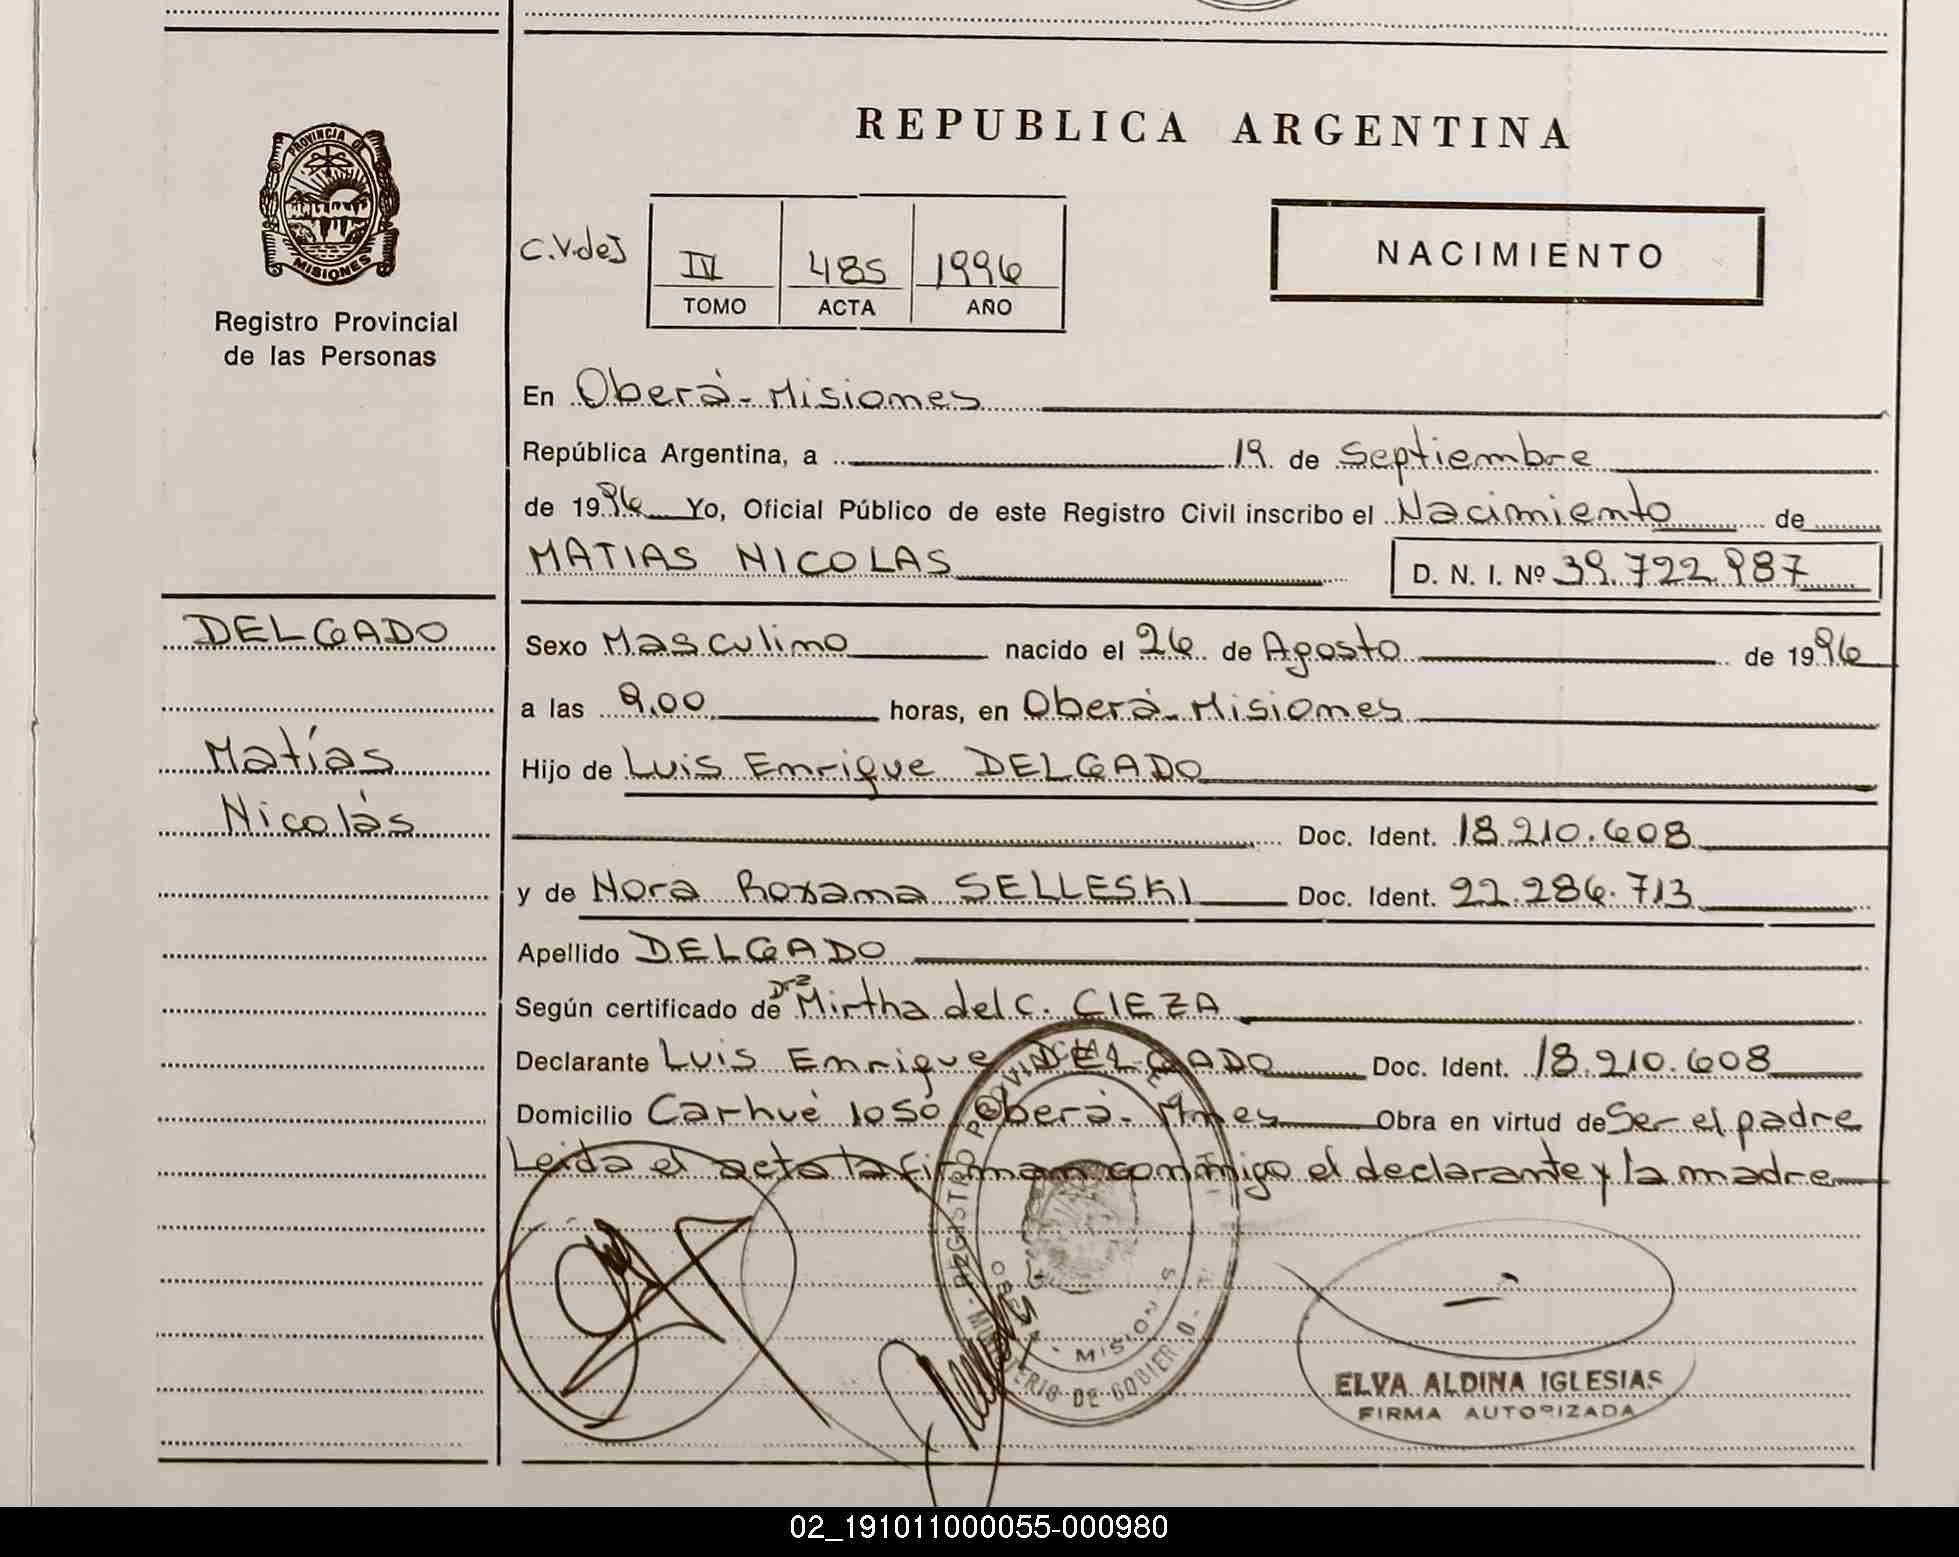 REPUBLICA ARGENTINA
PROVINCIA DE
MISIONES
Registro Provincial
de las Personas
C.V.deJ
IV 485 1996
TOMO ACTA AÑO
NACIMIENTO
En Oberá-Misiones
República Argentina, a 19 de Septiembre
de 1996 Yo, Oficial Público de este Registro Civil inscribo el Nacimiento de
MATIAS NICOLAS D. N. I. Nº 39.722.987
DELGADO
Matías
Nicolás
Sexo Masculino nacido el 26 de Agosto de 1996
a las 9,00 horas, en Oberá-Misiones
Hijo de Luis Enrique DELGADO
Doc. Ident. 18.210.608
y de Nora Roxana SELLESKI Doc. Ident. 22.286.713
Apellido DELGADO
Según certificado de Dra Mirtha del C. CIEZA
Declarante Luis Enrique DELGADO Doc. Ident. 18.210.608
Domicilio Carhué 1050 Oberá-Mnes Obra en virtud de Ser el padre
Leida el acta la firman conmigo el declarante y la madre
REGISTRO PROVINCIAL DE
MISIONES
MINISTERIO DE GOBIERNO
ELVA ALDINA IGLESIAS
FIRMA AUTORIZADA
02_191011000055-000980